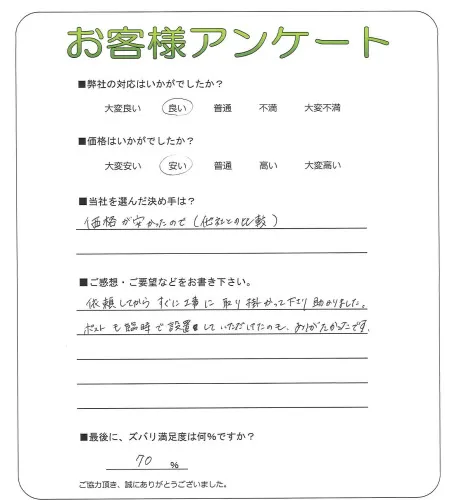 お客様アンケート
■弊社の対応はいかがでしたか？
大変良い 良い 普通 不満 大変不満
■価格はいかがでしたか？
大変安い 安い 普通 高い 大変高い
■当社を選んだ決め手は？
価格が安かったので(他社との比較)
■ご感想・ご要望などをお書き下さい。
依頼してからすぐに工事に取り掛かって下さり助かりました。
ポストも臨時で設置していただけたのも、ありがたかったです。
■最後に、ズバリ満足度は何%ですか？
70 %
ご協力頂き、誠にありがとうございました。